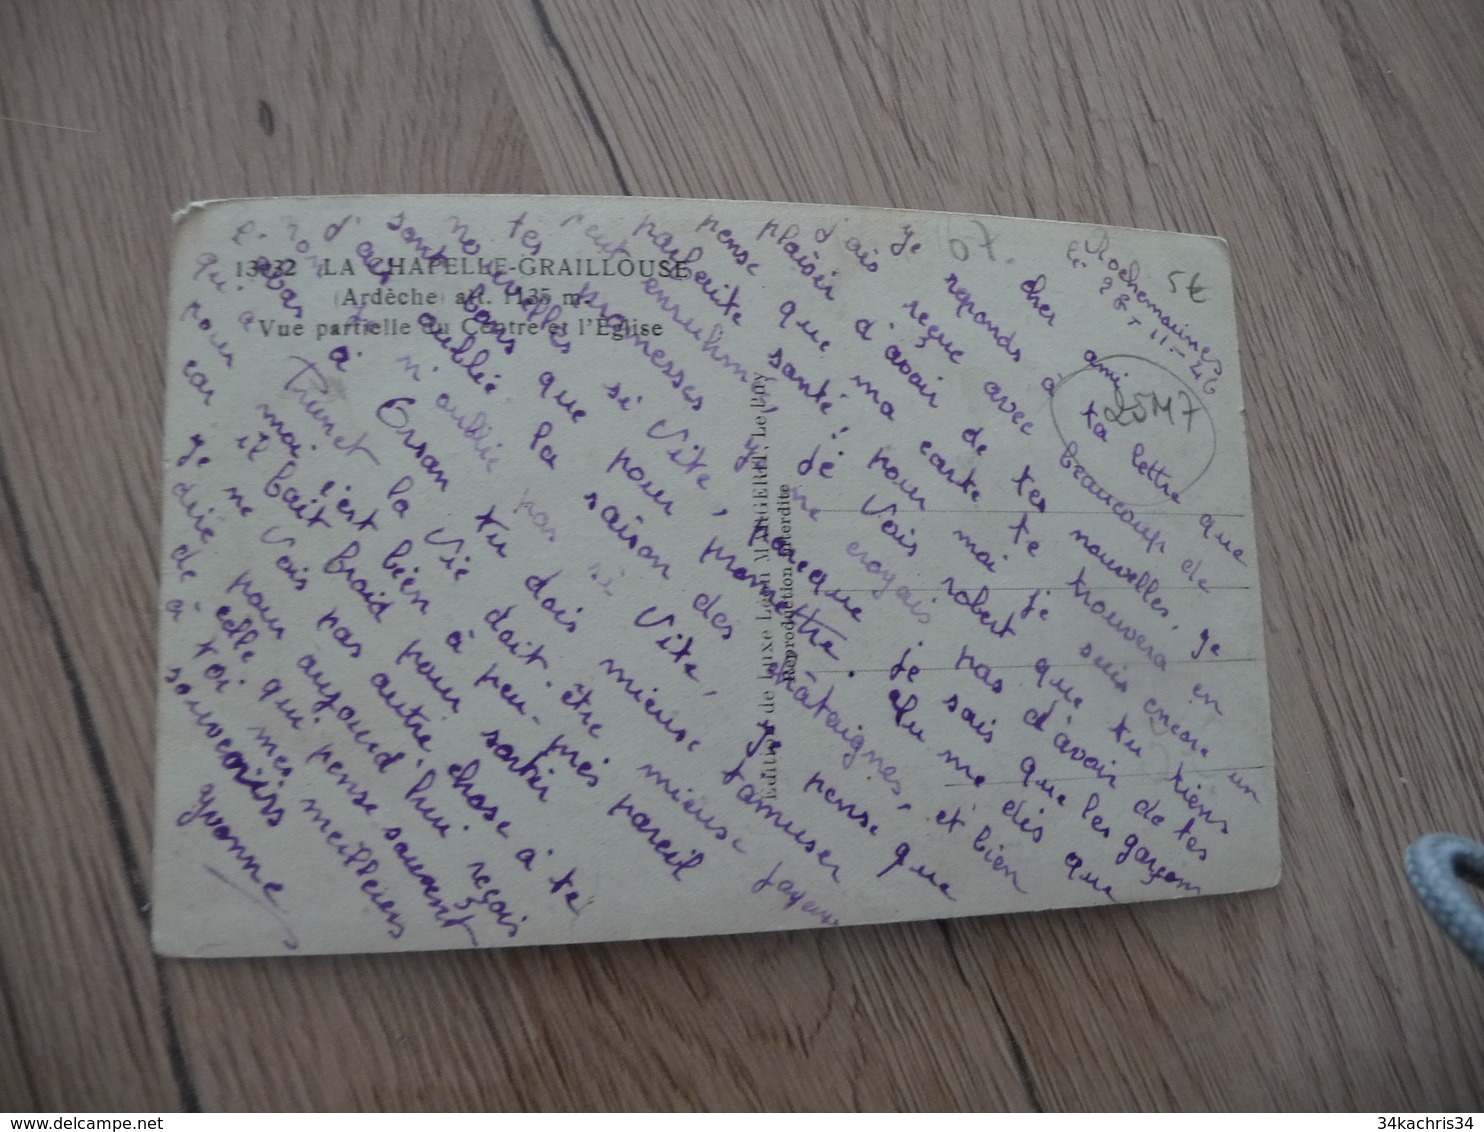 13132 LA CHAPELLE-GRAILLOUSE
Ardèche alt. 1135 m.
Vue partielle du Centre et l'Église
Editions de Luxe Léon MARGERIT, Le Puy
Reproduction interdite
5€
67.
25M7
Rochemaures
le 28-11-46
cher ami
ye reponds à ta lettre que
j'ais reçue avec beaucoup de
plaisir d'avoir de tes nouvelles, ye
pense que ma carte te trouvera en
parfaite santé, pour moi je suis encore un
peut enrhumé, je vois robert que tu tiens
tes promesses, y ne croyais pas d'avoir de tes
nouvelles si vite, parceque je sais que les garçons
sont bons que pour promettre. Tu me dis que
d'ai oublié la saison des châtaignes, et bien
non je n'oublie pas si vite, ye pense que
là bas à Ersan tu dois mieux tamuser
qu'a Privet la vie doit-être mieux
pour moi c'est bien à peu-près pareil
car il fait froid pour sortir
ye ne vois pas autre chose à te
dire pour aujourd'hui reçois
de celle qui pense souvent
à toi mes meilleurs
souvenirs
yvonne
34kachris34